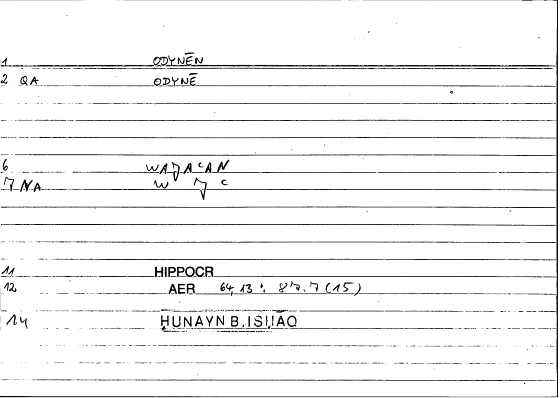 1 ODYNĒN
2 QA ODYNĒ
6 WAJAʿAN
7 NA W J ʿ
11 HIPPOCR
12 AER 64,13 : 87.7 (15)
14 ḤUNAYN B. ISḤĀQ